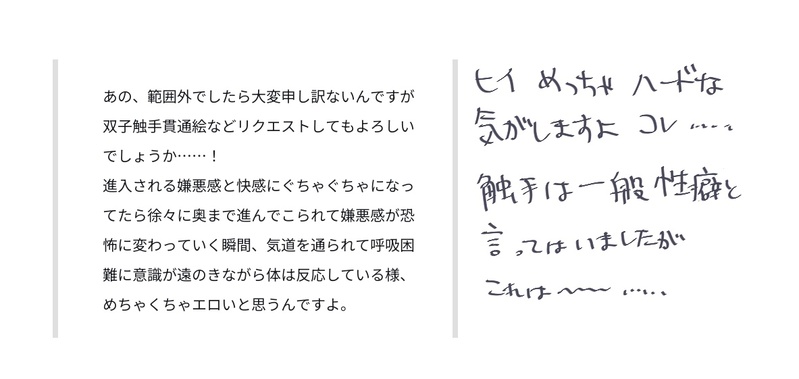 あの、範囲外でしたら大変申し訳ないんですが
双子触手貫通絵などリクエストしてもよろしい
でしょうか……！
進入される嫌悪感と快感にぐちゃぐちゃになっ
てたら徐々に奥まで進んでこられて嫌悪感が恐
怖に変わっていく瞬間、気道を通られて呼吸困
難に意識が遠のきながら体は反応している様、
めちゃくちゃエロいと思うんですよ。
ヒイ めっちゃ ハードな
気がしますよ コレ ……
触手は一般性癖と
言ってはいましたが
これは〜〜 ……